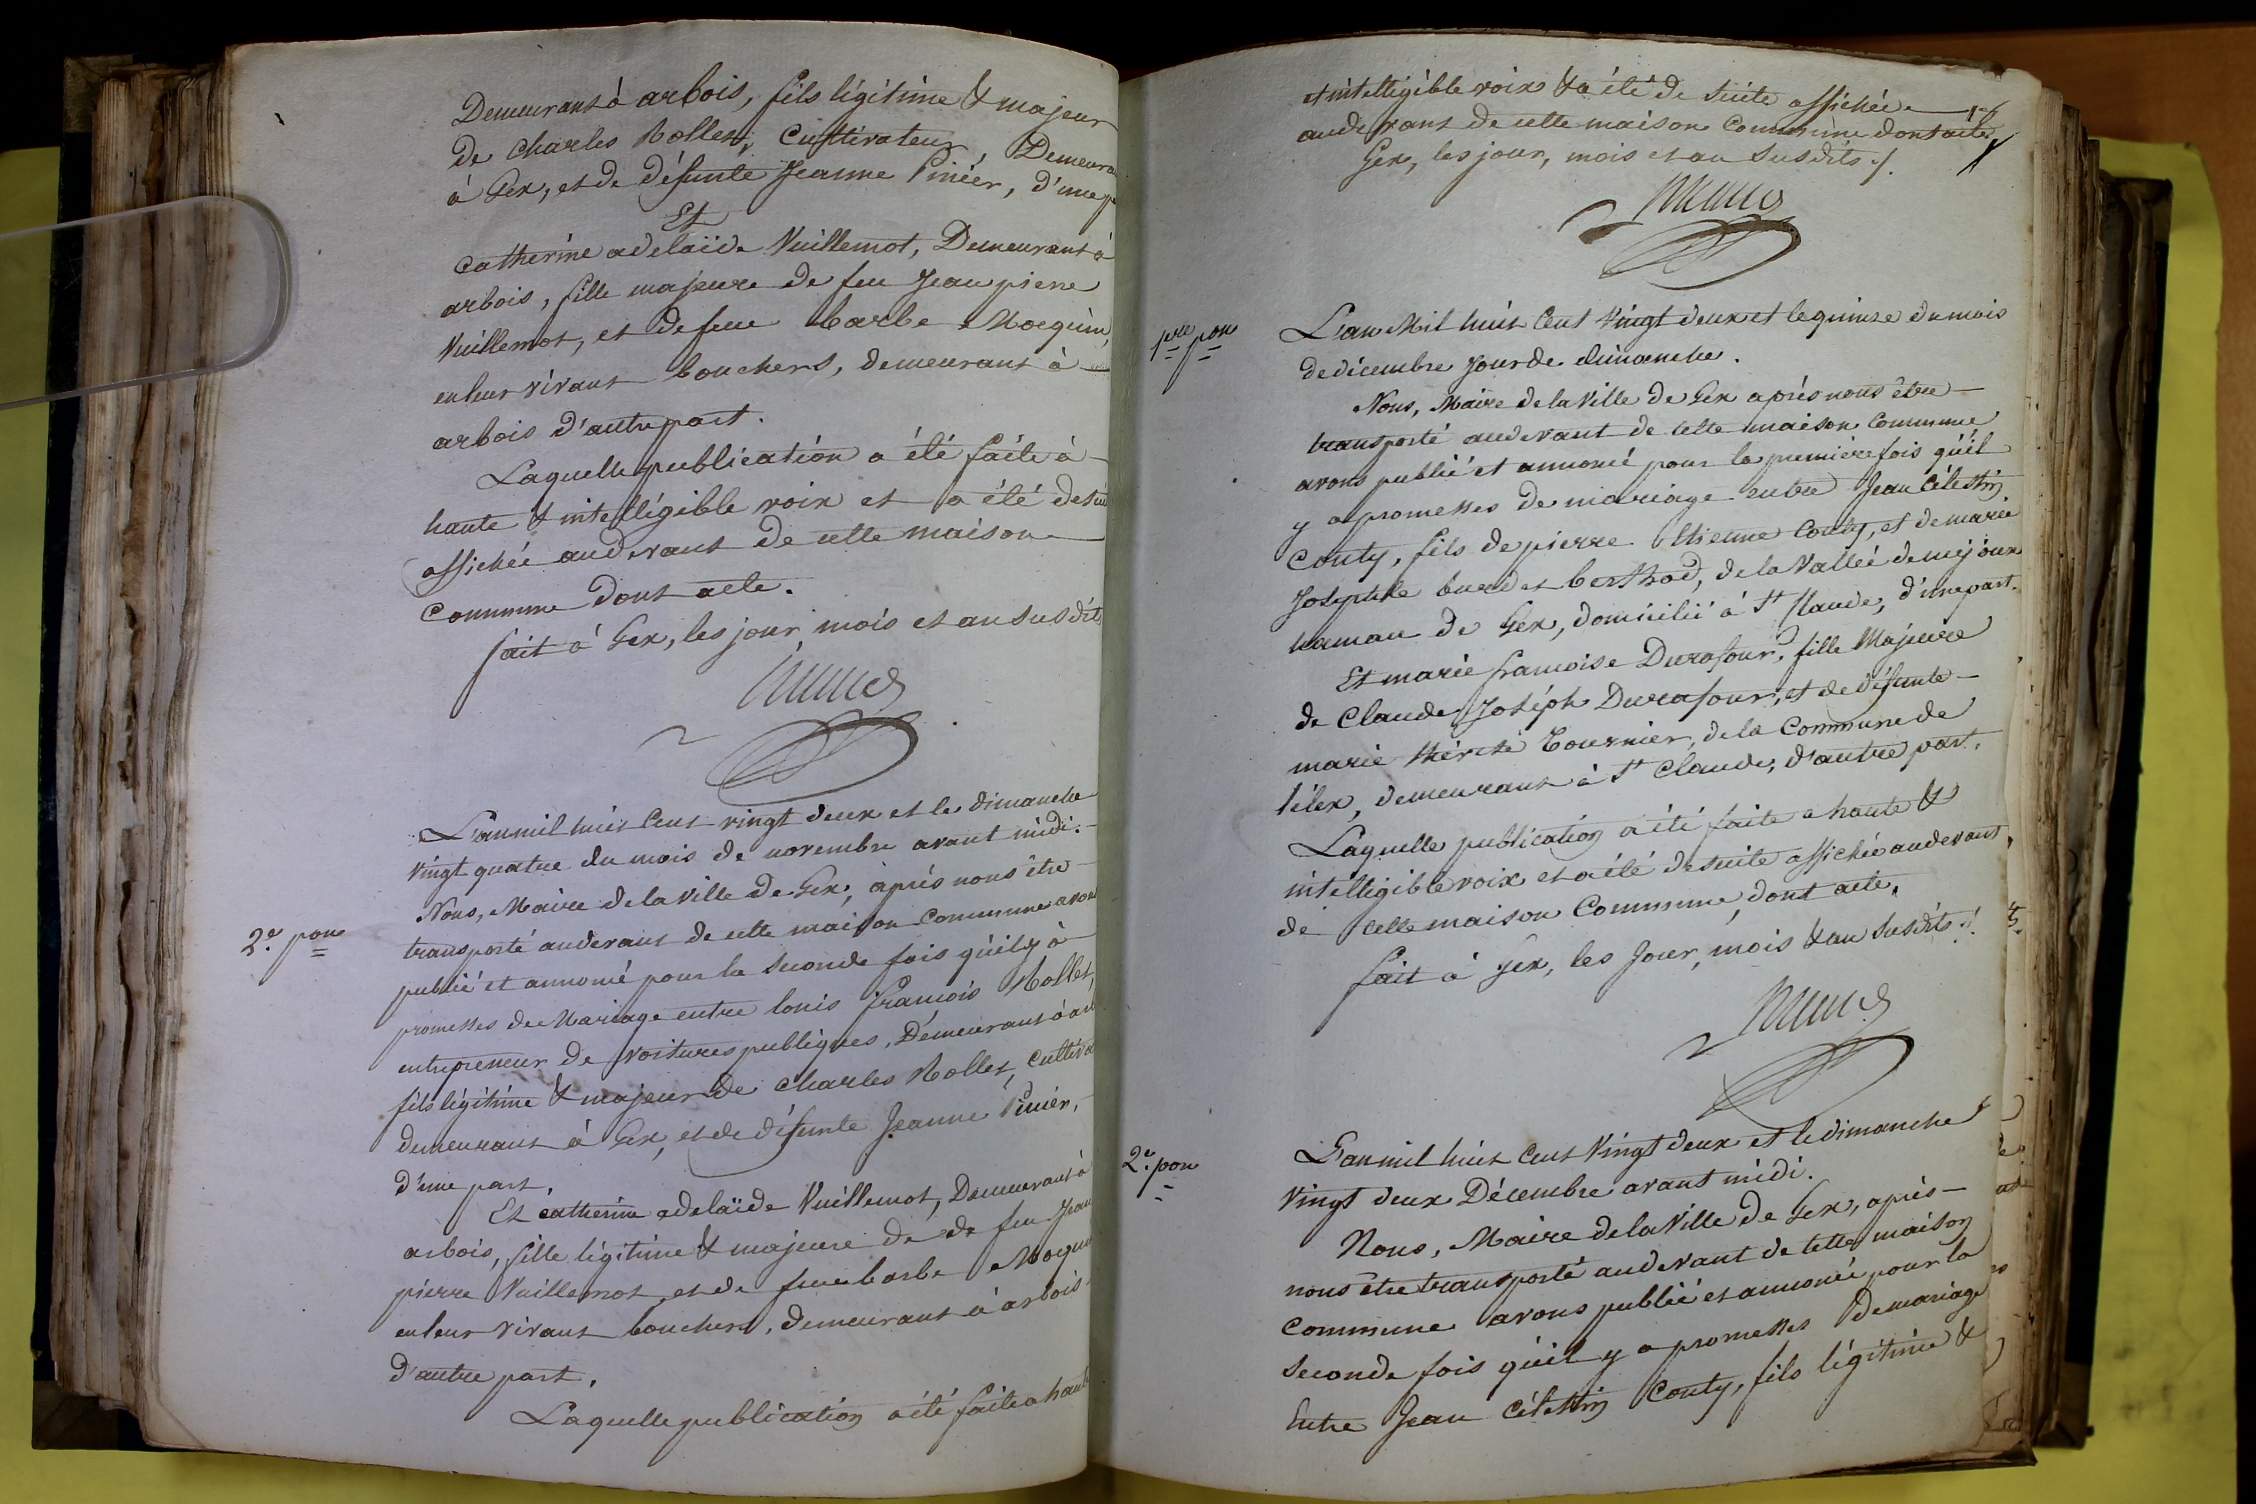 Demeurant à arbois, fils légitime & majeur
de Charles Rollet, Cultivateur, Demeura
à Gex, et de défunte Jeanne Pinier, d'une p
Et
Catherine adelaïde Vuillemot, Demeurant à
arbois, fille majeure de feu Jean pierre
Vuillemot, et de feue barbe Mocquin,
en leur vivant bouchers, demeurant à
arbois d'autre part.
Laquelle publication a été faite à
haute & intelligible voix et a été de sui
affichée au devant de cette maison
Commune dont acte.
fait à Gex, les jour, mois et an susdits
L'an mil huit Cent vingt deux et le dimanche
vingt quatre du mois de novembre avant midi.
Nous, Maire de la Ville de Gex, après nous être
2e. pon
transporté au devant de cette maison Commune avons
publié et annoncé pour la seconde fois qu'il y a
promesses de Mariage entre louis françois Rollet,
entrepreneur de voitures publiques, Demeurant à arb
fils légitime & majeur de Charles Rollet, Cultiva
demeurant à Gex, et de défunte Jeanne Pinier,
d'une part,
Et Catherine adelaïde Vuillemot, Demeurant à
arbois, fille légitime & majeure de de feu Jean
pierre Vuillemot, et de feue barbe Mocquin
en leur vivant bouchers, demeurant à arbois
d'autre part.
Laquelle publication a été faite a haute
et intelligible voix & a été de suite affichée
au devant de cette maison Commune dont acte,
Gex, les jour, mois et an susdits ./.
1ere pon
L'an Mil huit Cent Vingt deux et le quinze du mois
de décembre Jour de dimanche.
Nous, Maire de la Ville de Gex après nous être
transporté au devant de cette maison Commune
avons publié et annoncé pour la première fois qu'il
y a promesses de mariage entre Jean Célestin
Conty, fils de pierre Etienne Conty, et de marie
Josephte burdet berthod, de la Vallée de mijoux
hameau de Gex, domicilié à St Claude, d'une part.
Et marie francoise Durafour, fille Majeure
de Claude Joséph Durafour, et de défunte
marie thérèse Tournier, de la Commune de
lélex, demeurant à St Claude, d'autre part.
Laquelle publication a été faite a haute &
intelligible voix et a été de suite affichée au devant
de cette maison Commune, dont acte,
fait à Gex, les Jour, mois & an susdits ./.
2e. pon
L'an mil huit Cent Vingt deux et le dimanche
Vingt deux Décembre avant midi.
Nous, Maire de la Ville de Gex, après
nous être transporté au devant de cette maison
Commune avons publié et annoncé pour la
seconde fois qu'il y a promesses De mariage
Entre Jean Célestin Conty, fils légitime &